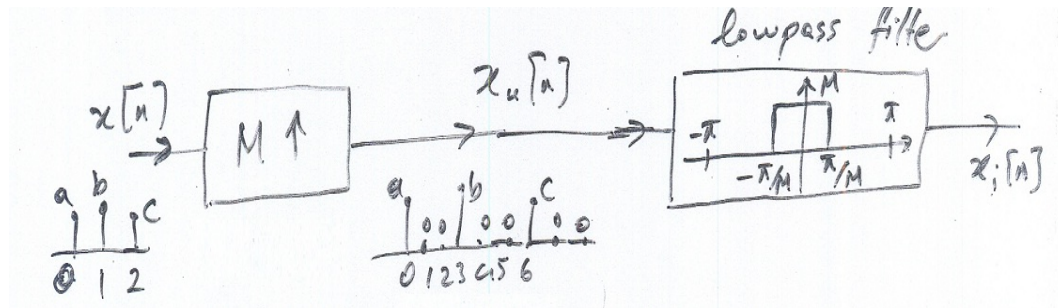 lowpass filte
x[n]
M ↑
x_u[n]
M
-π
π
-π/M
π/M
x_i[n]
a b c
0 1 2
a 0 0 b 0 0 c 0 0
0 1 2 3 4 5 6